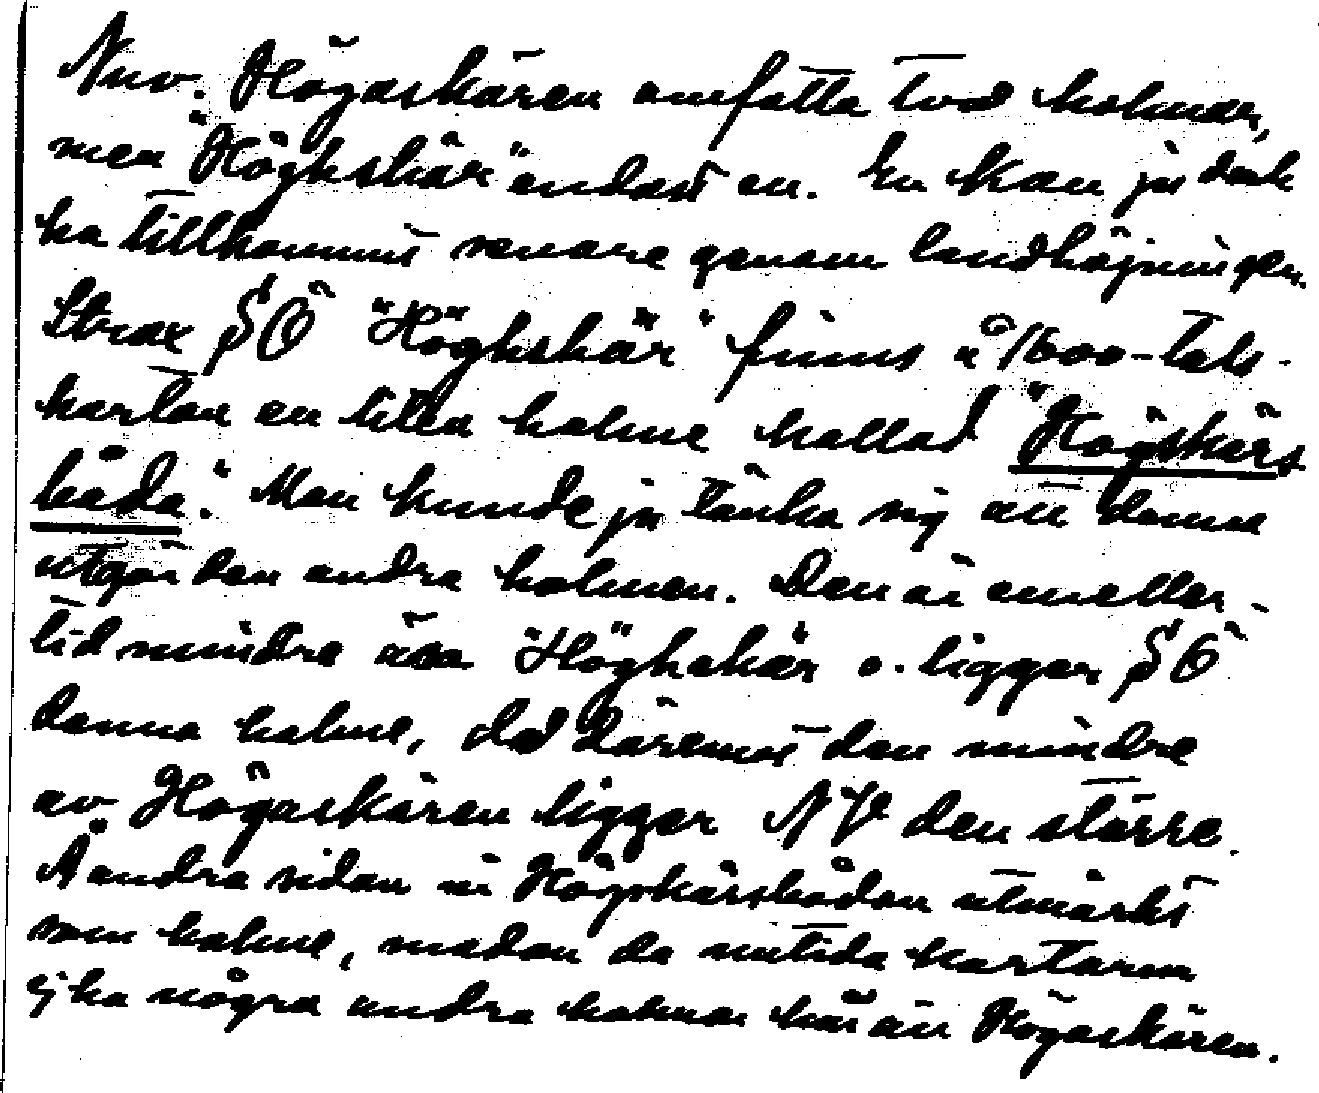 Nuv. Högaskären omfatta två holmar,
men "Höghskär" endast en. En kan ju dock
ha tillkommit senare genom landhöjningen.
Strax SÖ "Höghskär" finns å 1600-tals-
kartan en liten holme kallad "Högskärs
båda". Man kunde ju tänka sig att denna
utgör den andra holmen. Den är emeller-
tid mindre än Höghskär o. ligger SÖ
denna holme, då däremot den mindre
av Högaskären ligger NV den större.
Å andra sidan är Högskärsbådan utmärkt
som holme, medan de nutida kartorna
ej ha några andra holmar här än Högaskären.